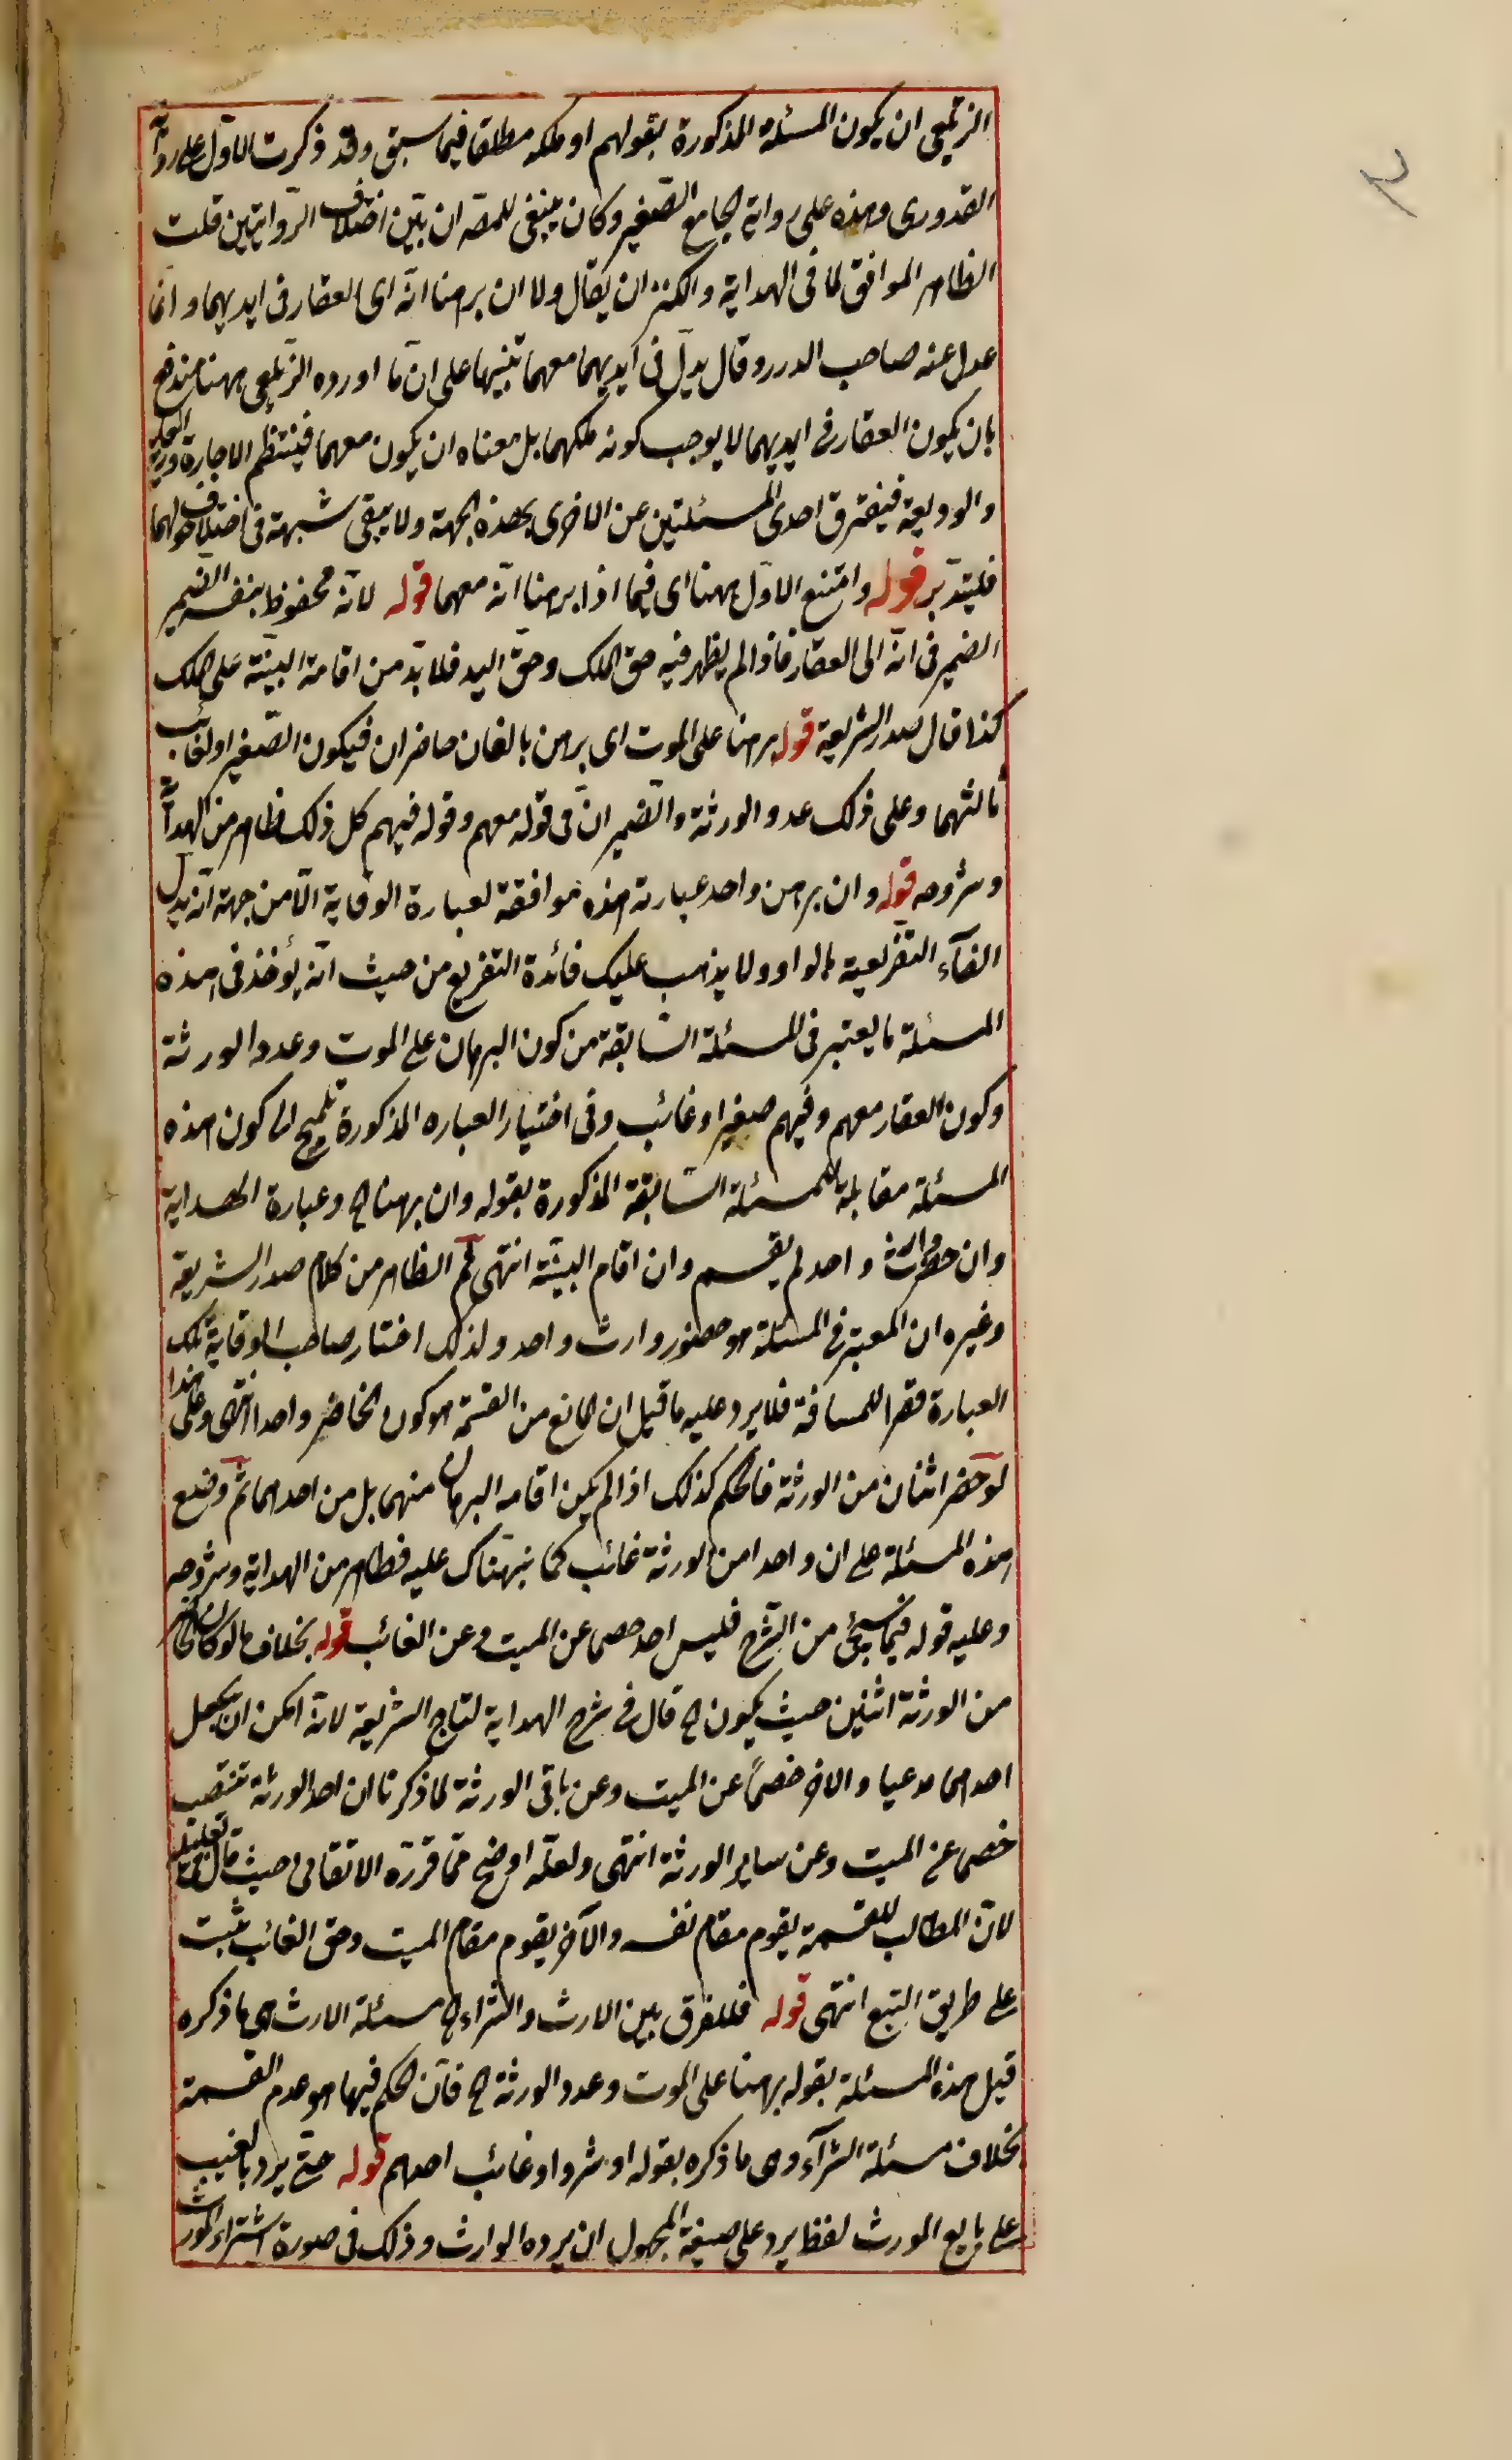 الزيلعى ان يكون المسئلة المذكورة بقولهم او ملكه مطلقا فيما سبق وقد ذكرت الاول على رواية
القدورى وهذه على رواية الجامع الصغير وكان ينبغى للمصه ان يبين اختلاف الروايتين قلت
الظاهر الموافق لما فى الهداية والكنز ان يقال ولا ان برهنا انه اى العقار فى ايديهما وانما
عدل عنه صاحب الدرر وقال بدل فى ايديهما معهما تنبيها على ان ما اورده الزيلعى ههنا مندفع
بان يكون العقار فى ايديهما لا يوجب كونه ملكهما بل معناه ان يكون معهما فينتظم الاجارة والعارية
والوديعة فيفترق احدى المسئلتين عن الاخرى بهذه الجهة ولا يبقى شبهة فى اختلاف حوالهما
فليتدبر قوله وامتنع الاول ههنا اى فيما اذا برهنا انه معهما قوله لانه محفوظ بنفسه الضمير
الضمير فى انه الى العقار فاذا لم يظهر فيه حق الملك وحق اليد فلا بد من اقامة البينة على الملك
كذا قال صدر الشريعة قوله برهنا على الموت اى برهن بالغان حاضران فيكون الصغير او الغائب
ثالثهما وعلى ذلك عدد الورثة والضميران فى قوله معهم وقوله فيهم كل ذلك ظاهر من الهداية
وشروحه قوله وان برهن واحد عبارته هذه موافقة لعبارة الوقاية الا من جهة انه بدل
الفاء التفريعية بالواو ولا يذهب عليك فائدة التفريع من حيث انه يؤخذ فى هذه
المسئلة ما يعتبر فى المسئلة السابقة من كون البرهان على الموت وعدد الورثة
وكون العقار معهم وفيهم صغير او غائب وفى اختيار العباره المذكورة تلميح الى كون هذه
المسئلة مقابلة للمسئلة السابقة المذكورة بقوله وان برهنا الخ وعبارة الهداية
وان حضر وارث واحد لم يقسم وان اقام البينة انتهى ثم الظاهر من كلام صدر الشريعة
وغيره ان المعتبر فى المسئلة هو حضور وارث واحد ولذلك اختار صاحب الوقاية تلك
العبارة قصرا للمسافة فلا يرد عليه ما قيل ان المانع من القسمة هو كون الحاضر واحدا انتهى وعلى هذا
لو حضر اثنان من الورثة فالحكم كذلك اذا لم يكن اقامه البرهان منهما بل من احدهما ثم وضع
هذه المسئلة على ان واحدا من الورثة غائب كما نبهناك عليه فظاهر من الهداية وشروحه
وعليه قوله فيما سيجئ من الشرح فليس احد خصما عن الميت وعن الغائب قوله بخلاف ما لو كان الحاضر
من الورثة اثنين حيث يكون الخ قال فى شرح الهداية لتاج الشريعة لانه امكن ان يجعل
احدهما مدعيا والاخر خصمًا عن الميت وعن باقى الورثة لما ذكرنا ان احد الورثة تنتصب
خصما عن الميت وعن ساير الورثة انتهى ولعله اوضح مما قرره الاتقانى حيث قال فى تعليله
لان المطالب للقسمة يقوم مقام نفسه والآخر يقوم مقام الميت وحق الغائب يثبت
على طريق التبع انتهى قوله فللفرق بين الارث والشراء الخ مسئلة الارث هى ما ذكره
قبل هذه المسئلة بقوله برهنا على الموت وعدد الورثة الخ فان الحكم فيها هو عدم القسمة
بخلاف مسئلة الشرآء وهى ما ذكره بقوله او شروا وغائب احدهم قوله حتى يرد بالعيب
على بايع المورث لفظ يرد على صيغة المجهول ان يرده الوارث وذلك فى صورة اشتراء المورث